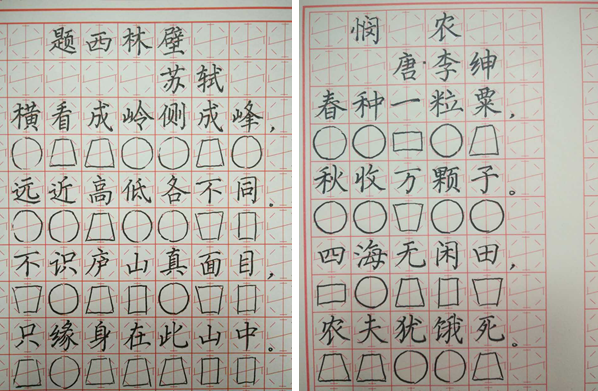 题西林壁
苏轼
横看成岭侧成峰，
远近高低各不同。
不识庐山真面目，
只缘身在此山中。
悯农
唐·李绅
春种一粒粟，
秋收万颗子。
四海无闲田，
农夫犹饿死。